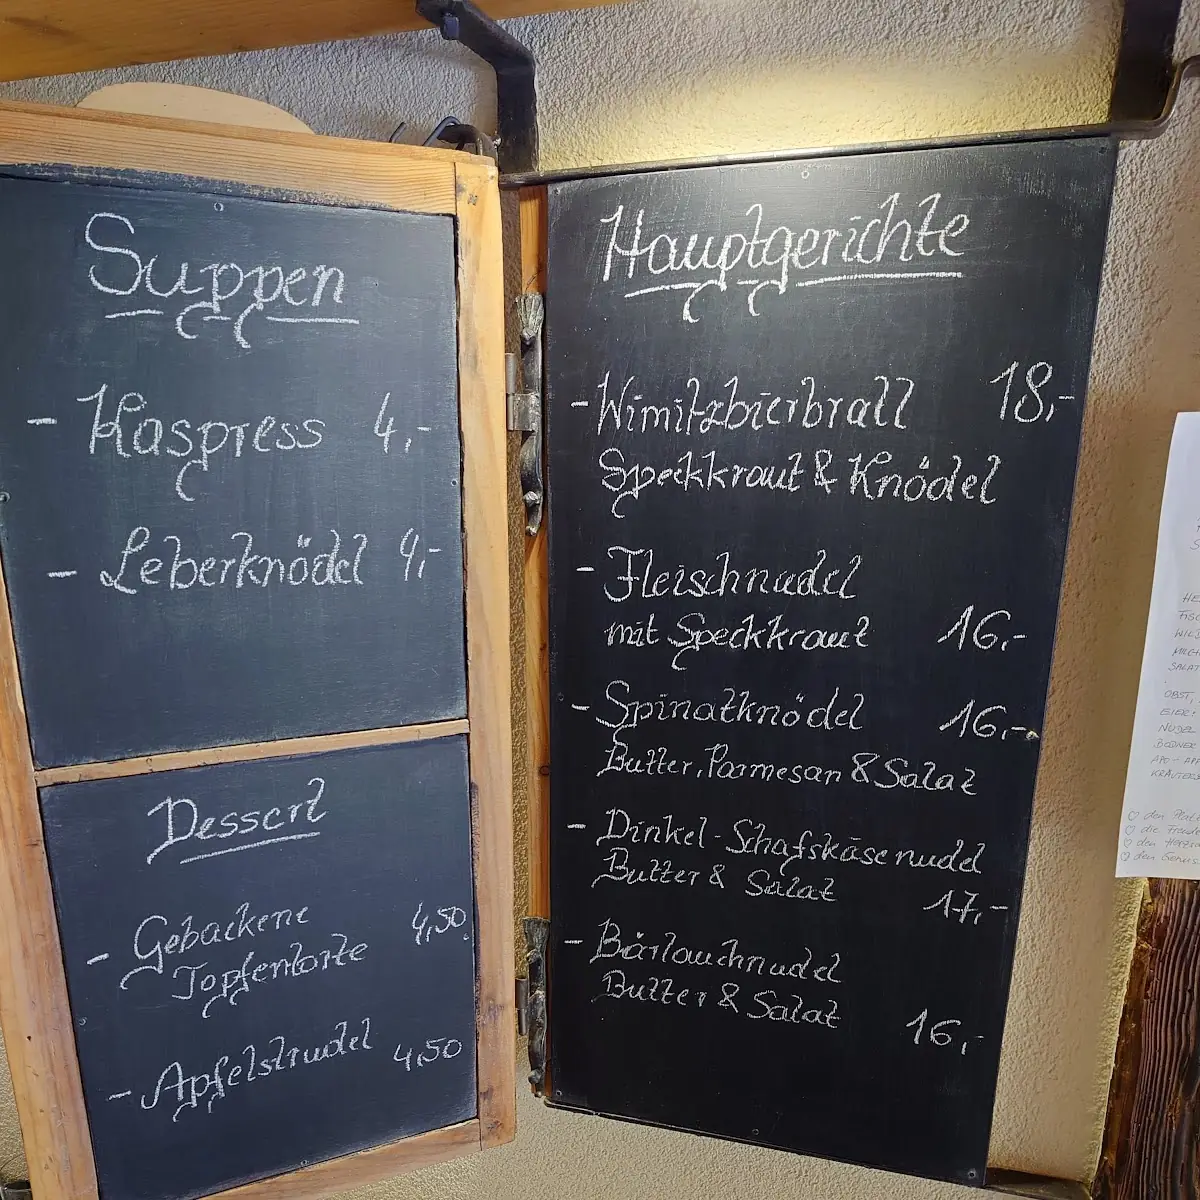 Suppen
- Kaspress 4,-
- Leberknödel 4,-
Dessert
- Gebackene 4,50
Topfentorte
- Apfelstrudel 4,50
Hauptgerichte
- Wimitzbierbratl 18,-
Speckkraut & Knödel
- Fleischnudel
mit Speckkraut 16,-
- Spinatknödel 16,-
Butter, Parmesan & Salat
- Dinkel-Schafskäsenudel
Butter & Salat 17,-
- Bärlauchnudel
Butter & Salat
16,-